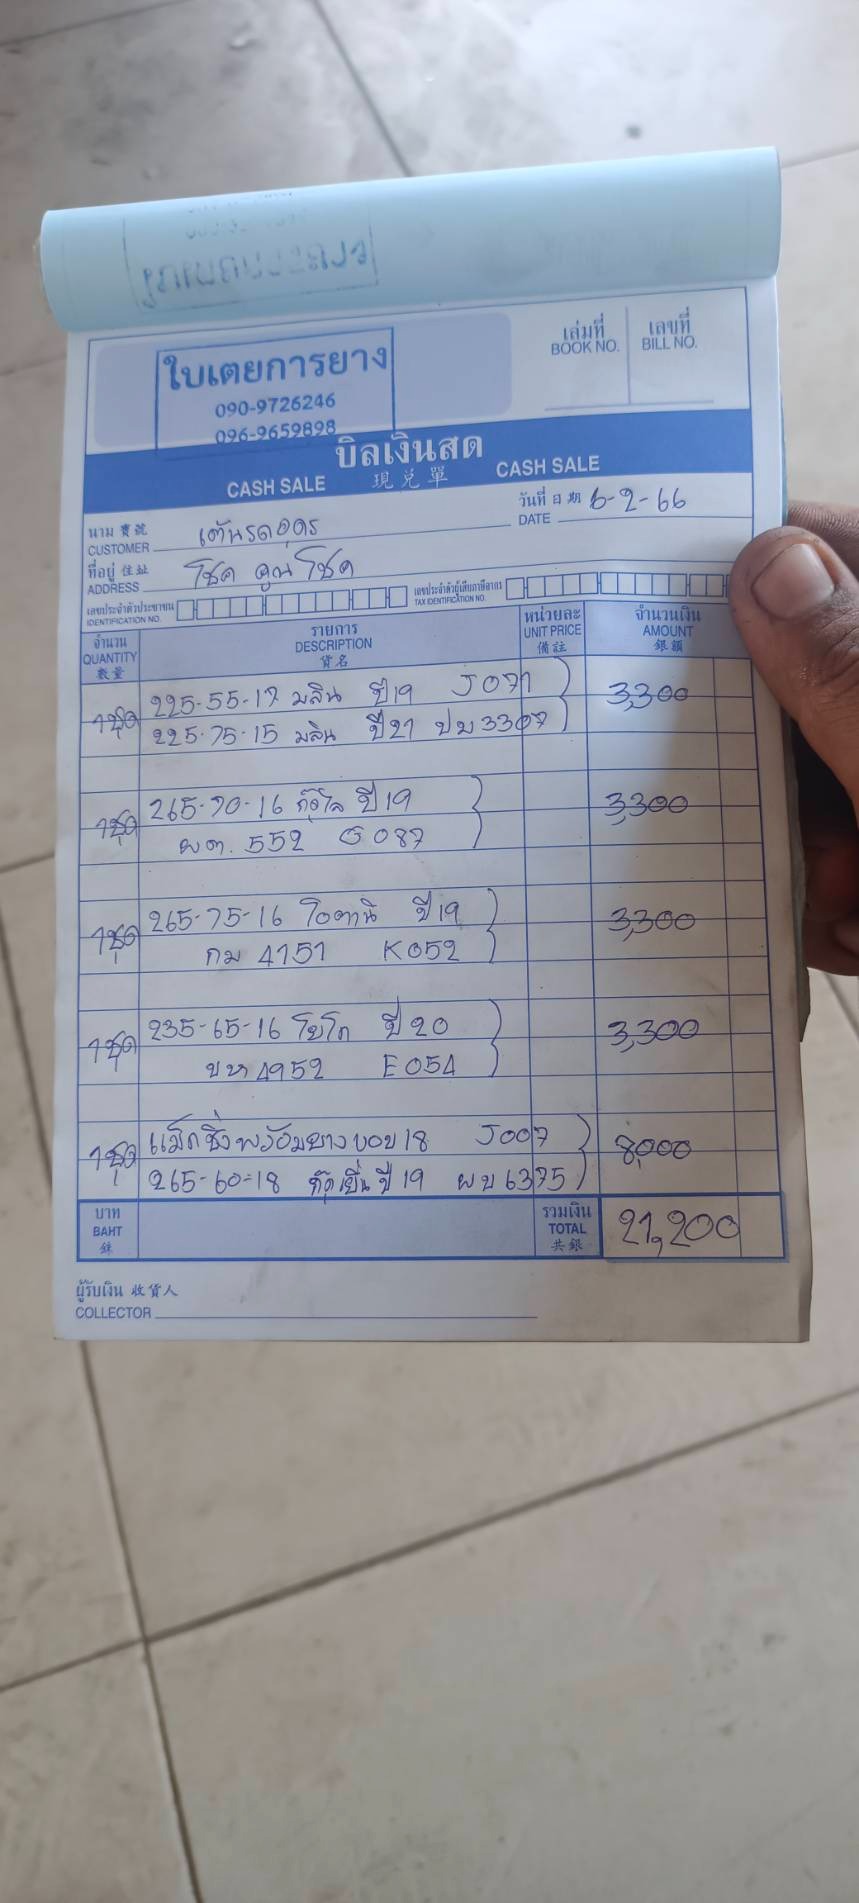 ใบเตยการยาง
090-9726246
096-9659898
เล่มที่ เลขที่
BOOK NO. BILL NO.
บิลเงินสด
CASH SALE 現兌單 CASH SALE
นาม 寶號 วันที่ 日期 6-2-66
CUSTOMER เต้นรถอุดร DATE
ที่อยู่ 住址 โชค คูณ โชค
ADDRESS
เลขประจำตัวประชาชน เลขประจำตัวผู้เสียภาษีอากร
IDENTIFICATION NO. TAX IDENTIFICATION NO.
จำนวน รายการ หน่วยละ จำนวนเงิน
QUANTITY DESCRIPTION UNIT PRICE AMOUNT
數量 貨名 備註 銀額
1ชุด 225-55-17 มลิน ปี19 J071 3,300
225-75-15 มลิน ปี21 ปม 3307
1ชุด 265-70-16 ปี19 3,300
ผต. 552 G087
1ชุด 265-75-16 โอตานิ ปี19 3,300
กม 4151 K052
1ชุด 235-65-16 โยโก ปี20 3,300
ขห 4952 E054
1ชุด แม็กซิ่งพร้อมยางขอบ18 J007 8,000
265-60-18 ปี19 ผบ 6375
บาท รวมเงิน 21,200
BAHT TOTAL
銖 共銀
ผู้รับเงิน 收貨人
COLLECTOR